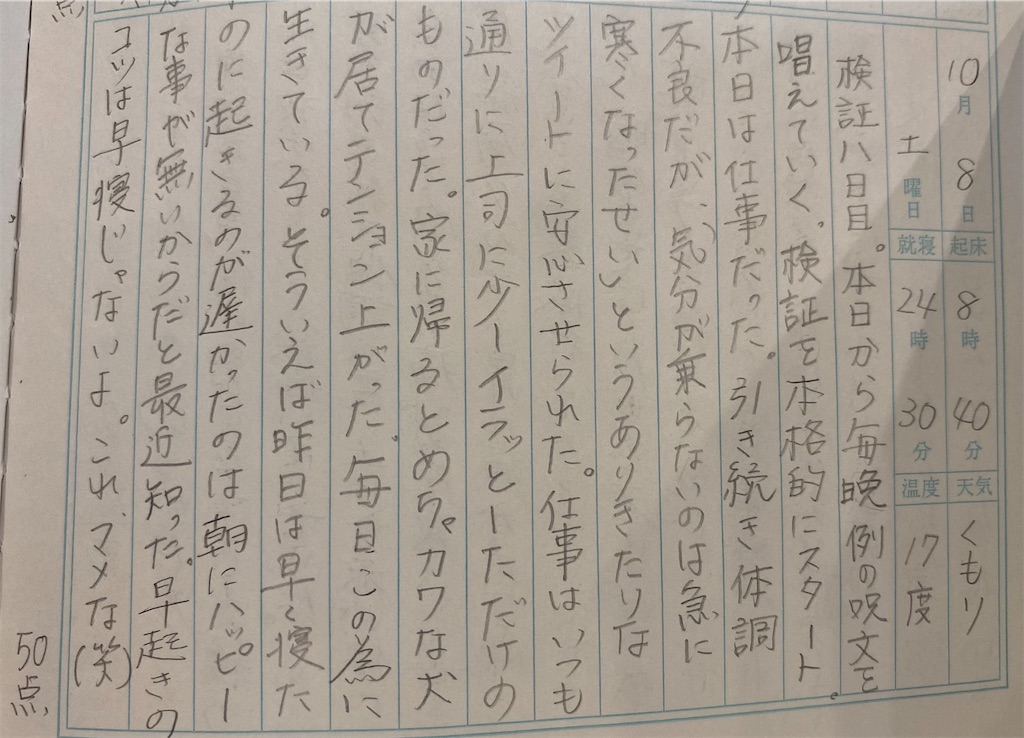 10月8日 起床 8時40分 天気 くもり
土曜日 就寝 24時30分 温度 17度
検証八日目。本日から毎晩例の呪文を
唱えていく。検証を本格的にスタート。
本日は仕事だった。引き続き体調
不良だが、「気分が乗らないのは急に
寒くなったせい」というありきたりな
ツイートに安心させられた。仕事はいつも
通りに上司に少しイラッとしただけの
ものだった。家に帰るとめちゃカワな犬
が居てテンション上がった。毎日この為に
生きている。そういえば昨日は早く寝た
のに起きるのが遅かったのは朝にハッピー
な事が無いからだと最近知った。早起きの
コツは早寝じゃないよ。これ、マメな(笑)
50点